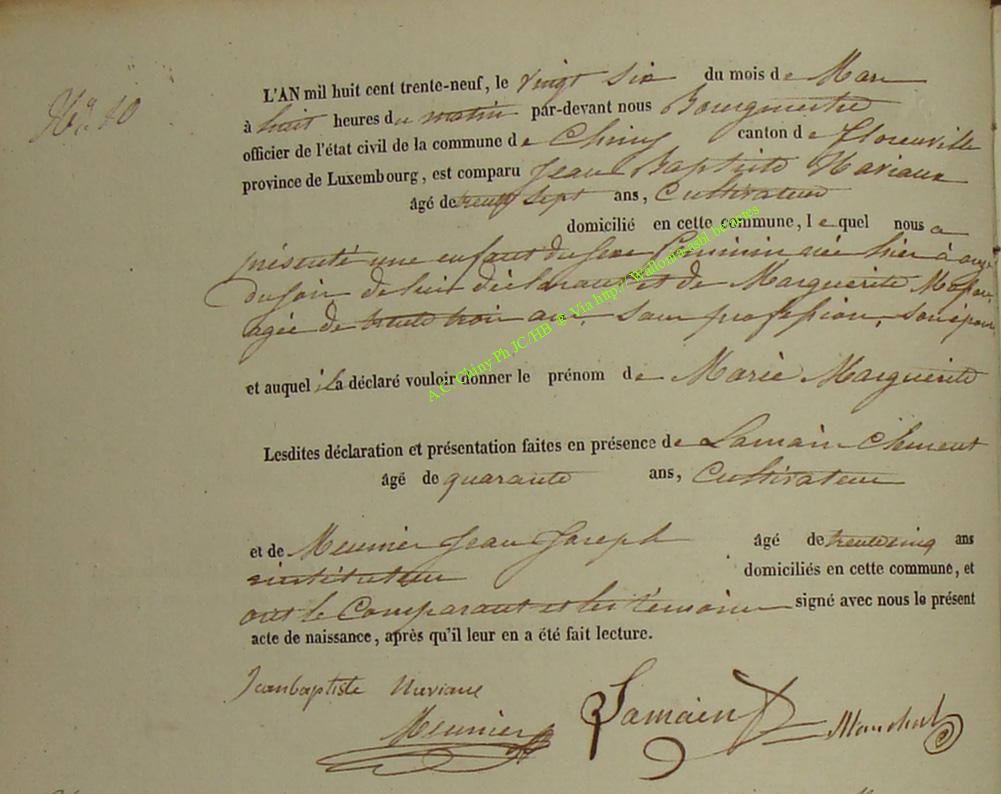 No. 10
L'AN mil huit cent trente-neuf, le vingt six du mois de Mars
à huit heures du matin par-devant nous Bourgmestre
officier de l'état civil de la commune de Chiny canton de Florenville
province de Luxembourg, est comparu Jean Baptiste Naviaux
âgé de trente sept ans, Cultivateur
domicilié en cette commune, le quel nous a
présenté une enfant du sexe féminin née hier à onze
du soir de lui déclarant et de Marguerite
agée de trente trois ans, sans profession, son épouse
et auquel il a déclaré vouloir donner le prénom de Marie Marguerite
Lesdites déclaration et présentation faites en présence de Lamain Clément
âgé de quarante ans, Cultivateur
et de Meunier Jean Joseph âgé de trente cinq ans
instituteur domiciliés en cette commune, et
ont le Comparant et les témoins signé avec nous le présent
acte de naissance, après qu'il leur en a été fait lecture.
Jeanbaptiste Naviaux
Meunier Lamain
A.C. Chiny Ph JC/HB @ Via http://Wallonia-asbl be/actes